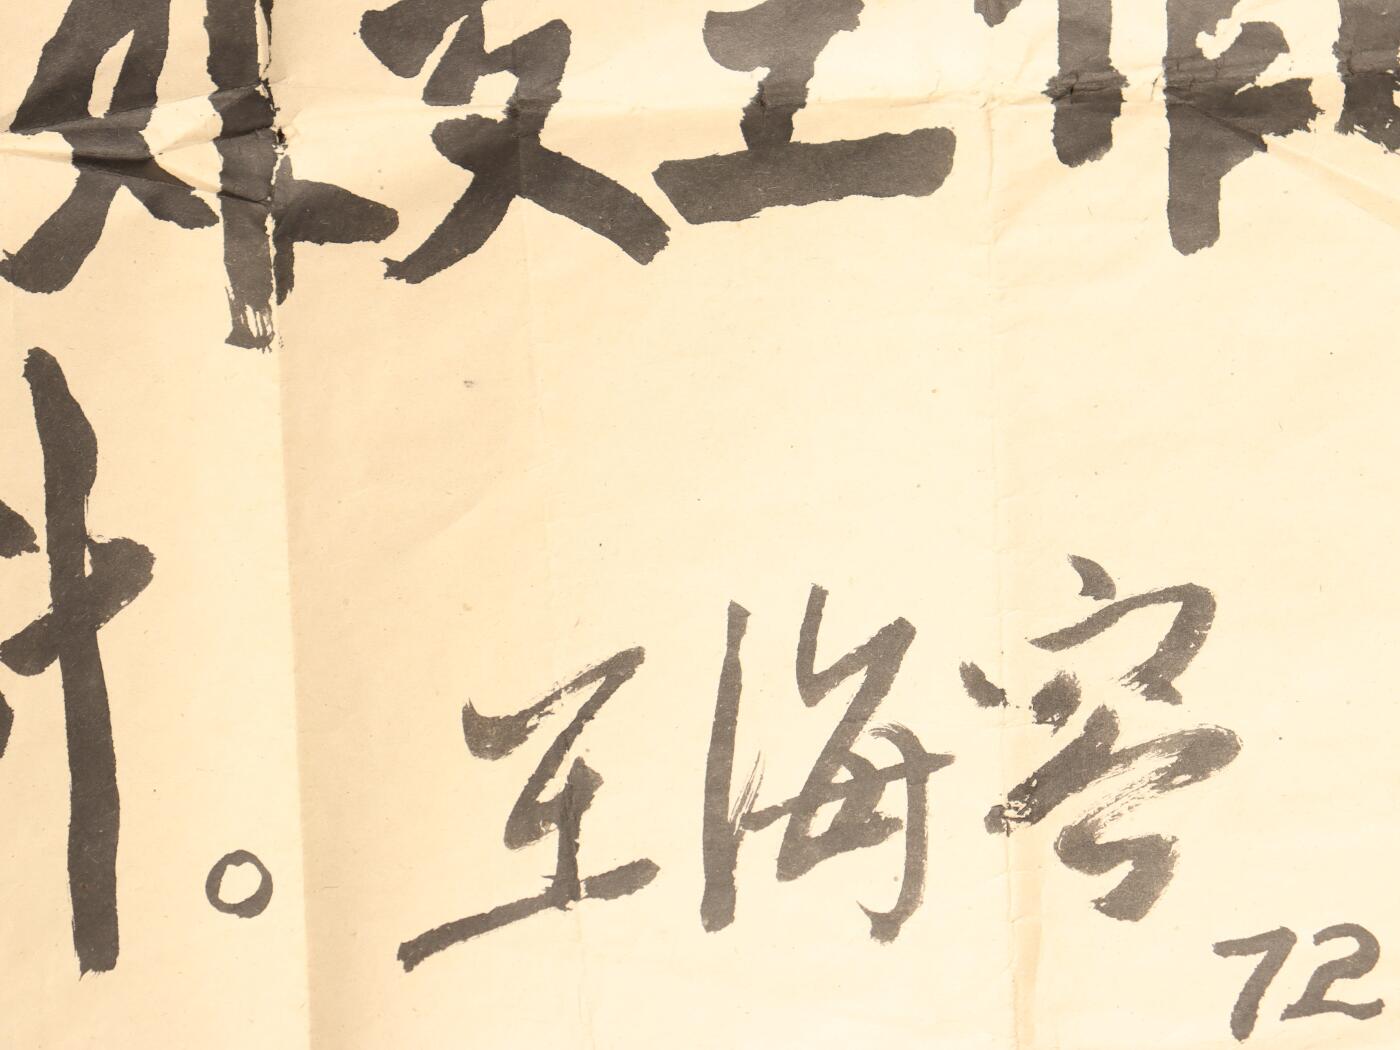 外交工作
。 王海容
72